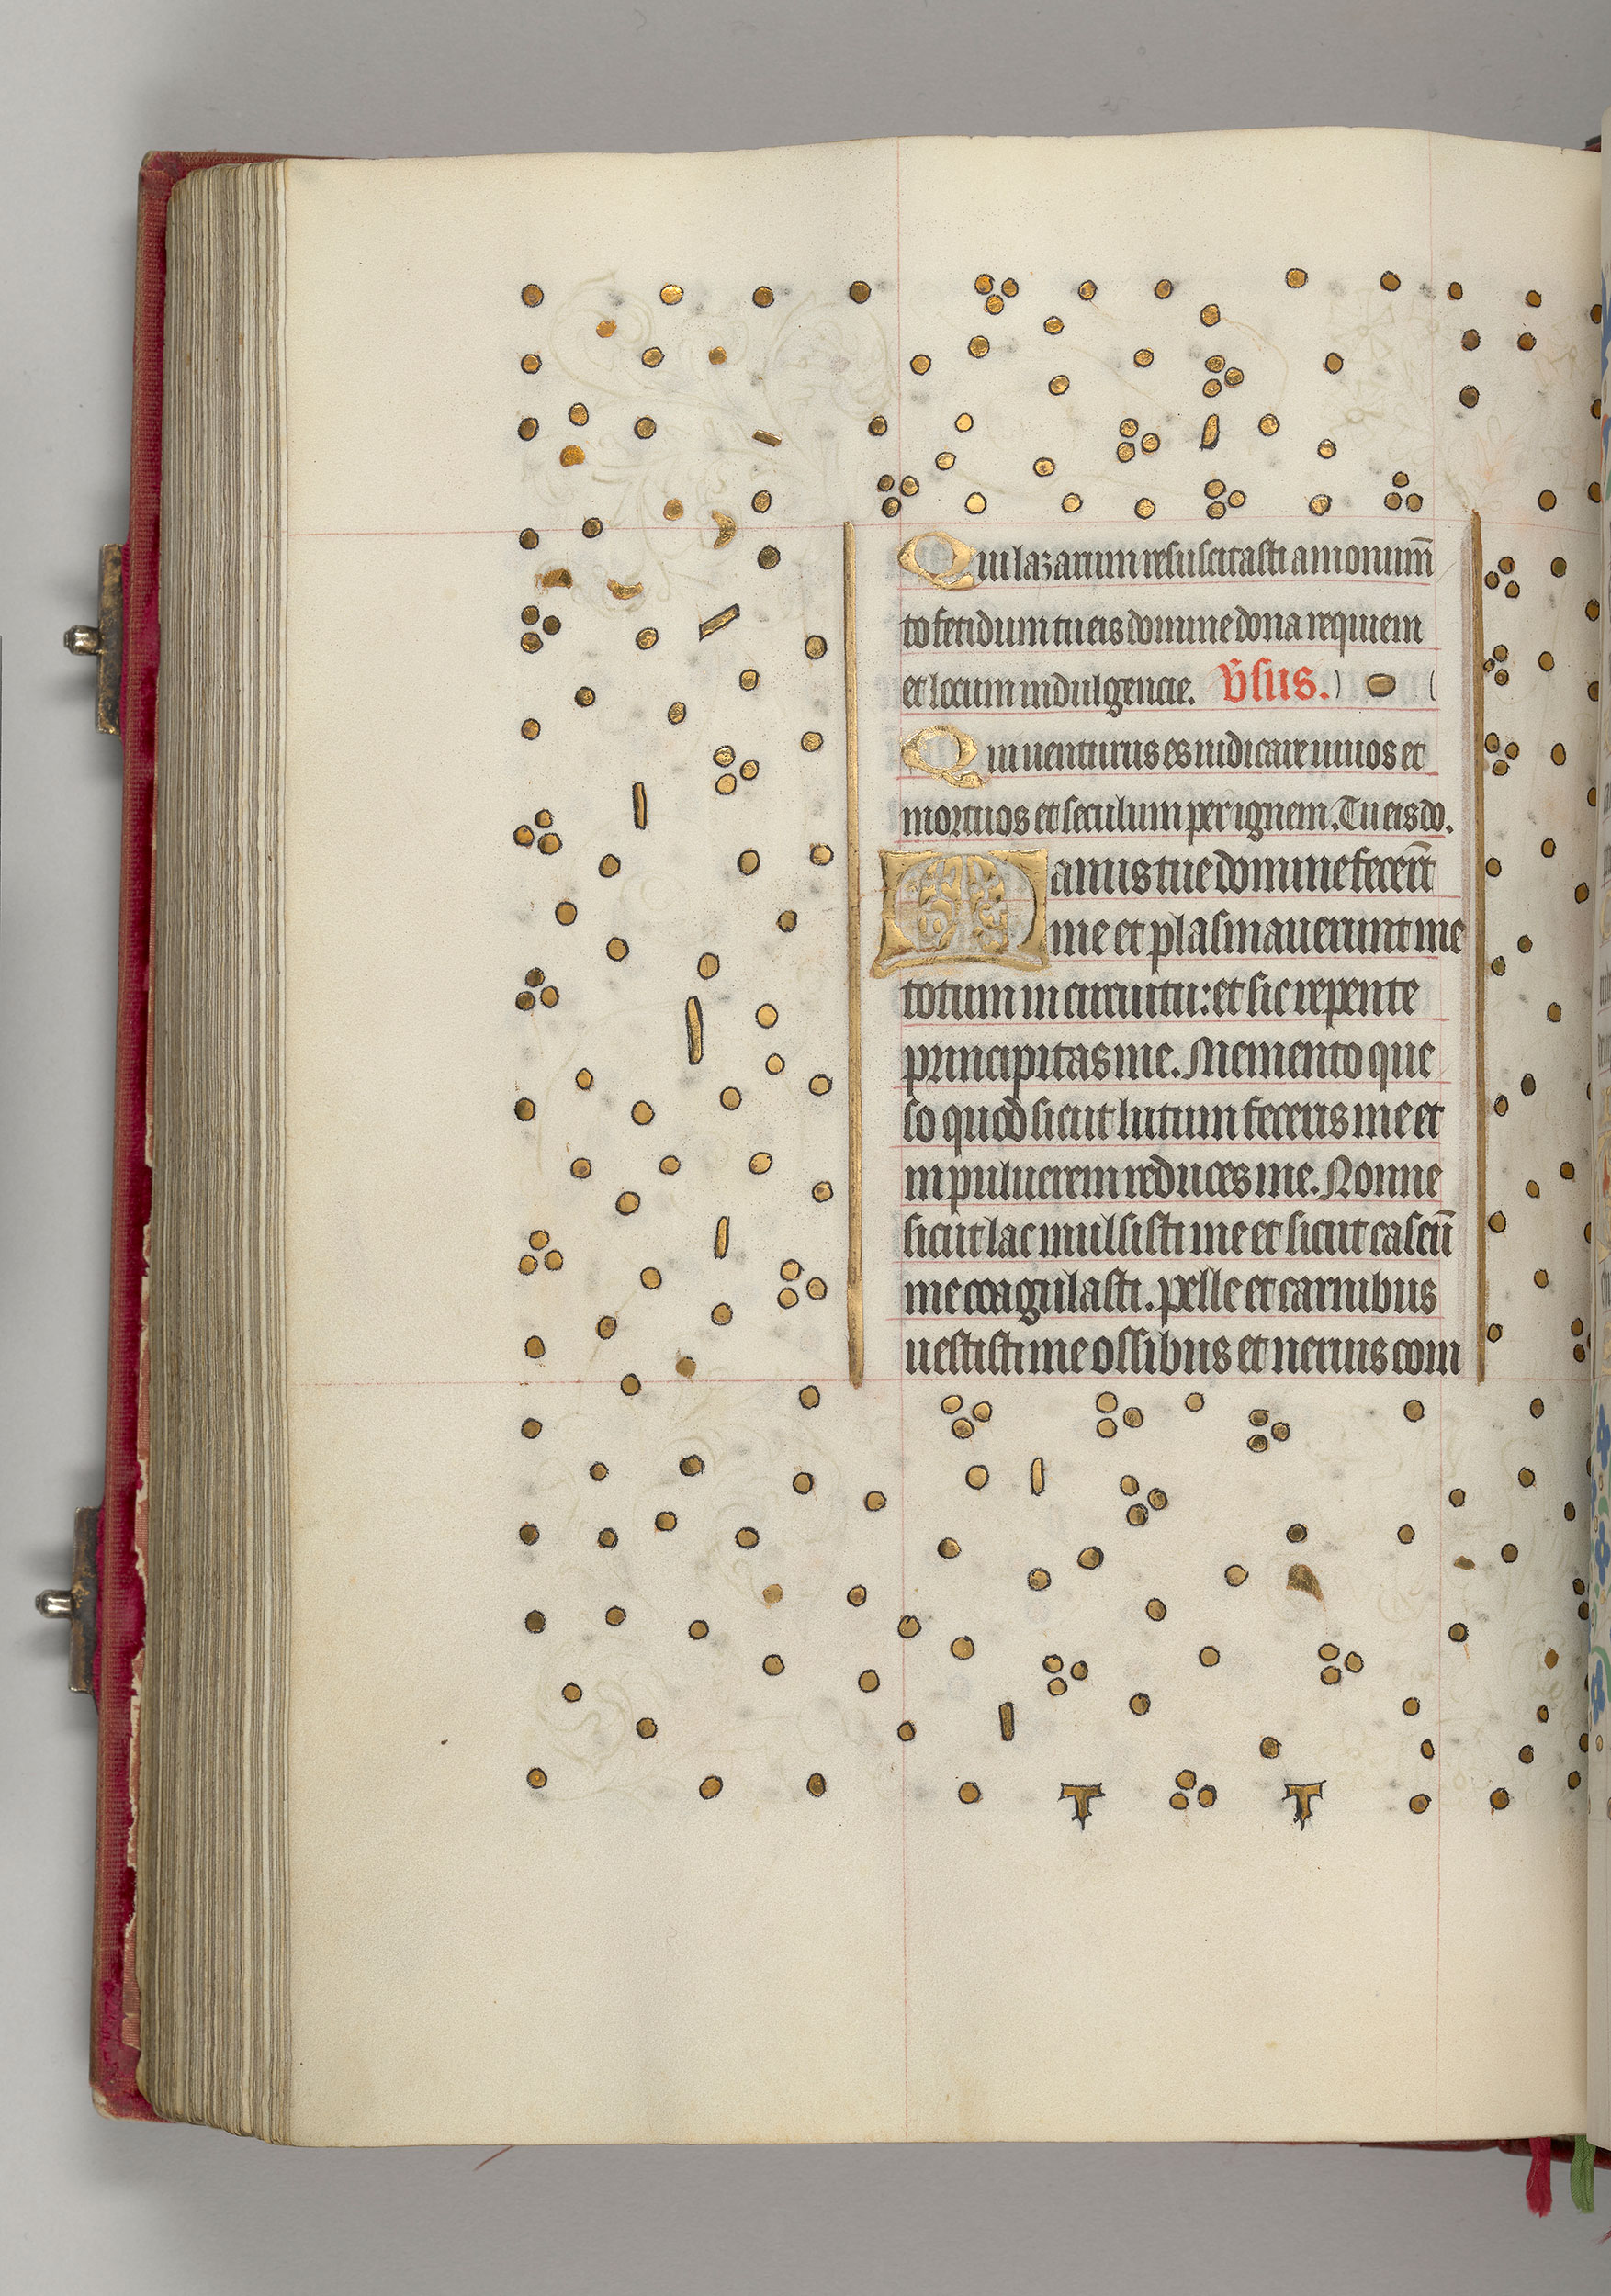 Qui lazarum resuscitasti a monum̄
to fetidum tu eis domine dona requiem
et locum indulgencie. V̄sus.
Qui uenturus es iudicare uiuos et
mortuos et seculum per ignem. Tu eis do.
Manus tue domine fecer̄t
me et plasmauerunt me
totum in circuitu: et sic repente
principitas me. Memento que
so quod sicut lutum feceris me et
in puluerem reduces me. Nonne
sicut lac mulsisti me et sicut caseū
me coagulasti. pelle et carnibus
uestisti me ossibus et neruis com